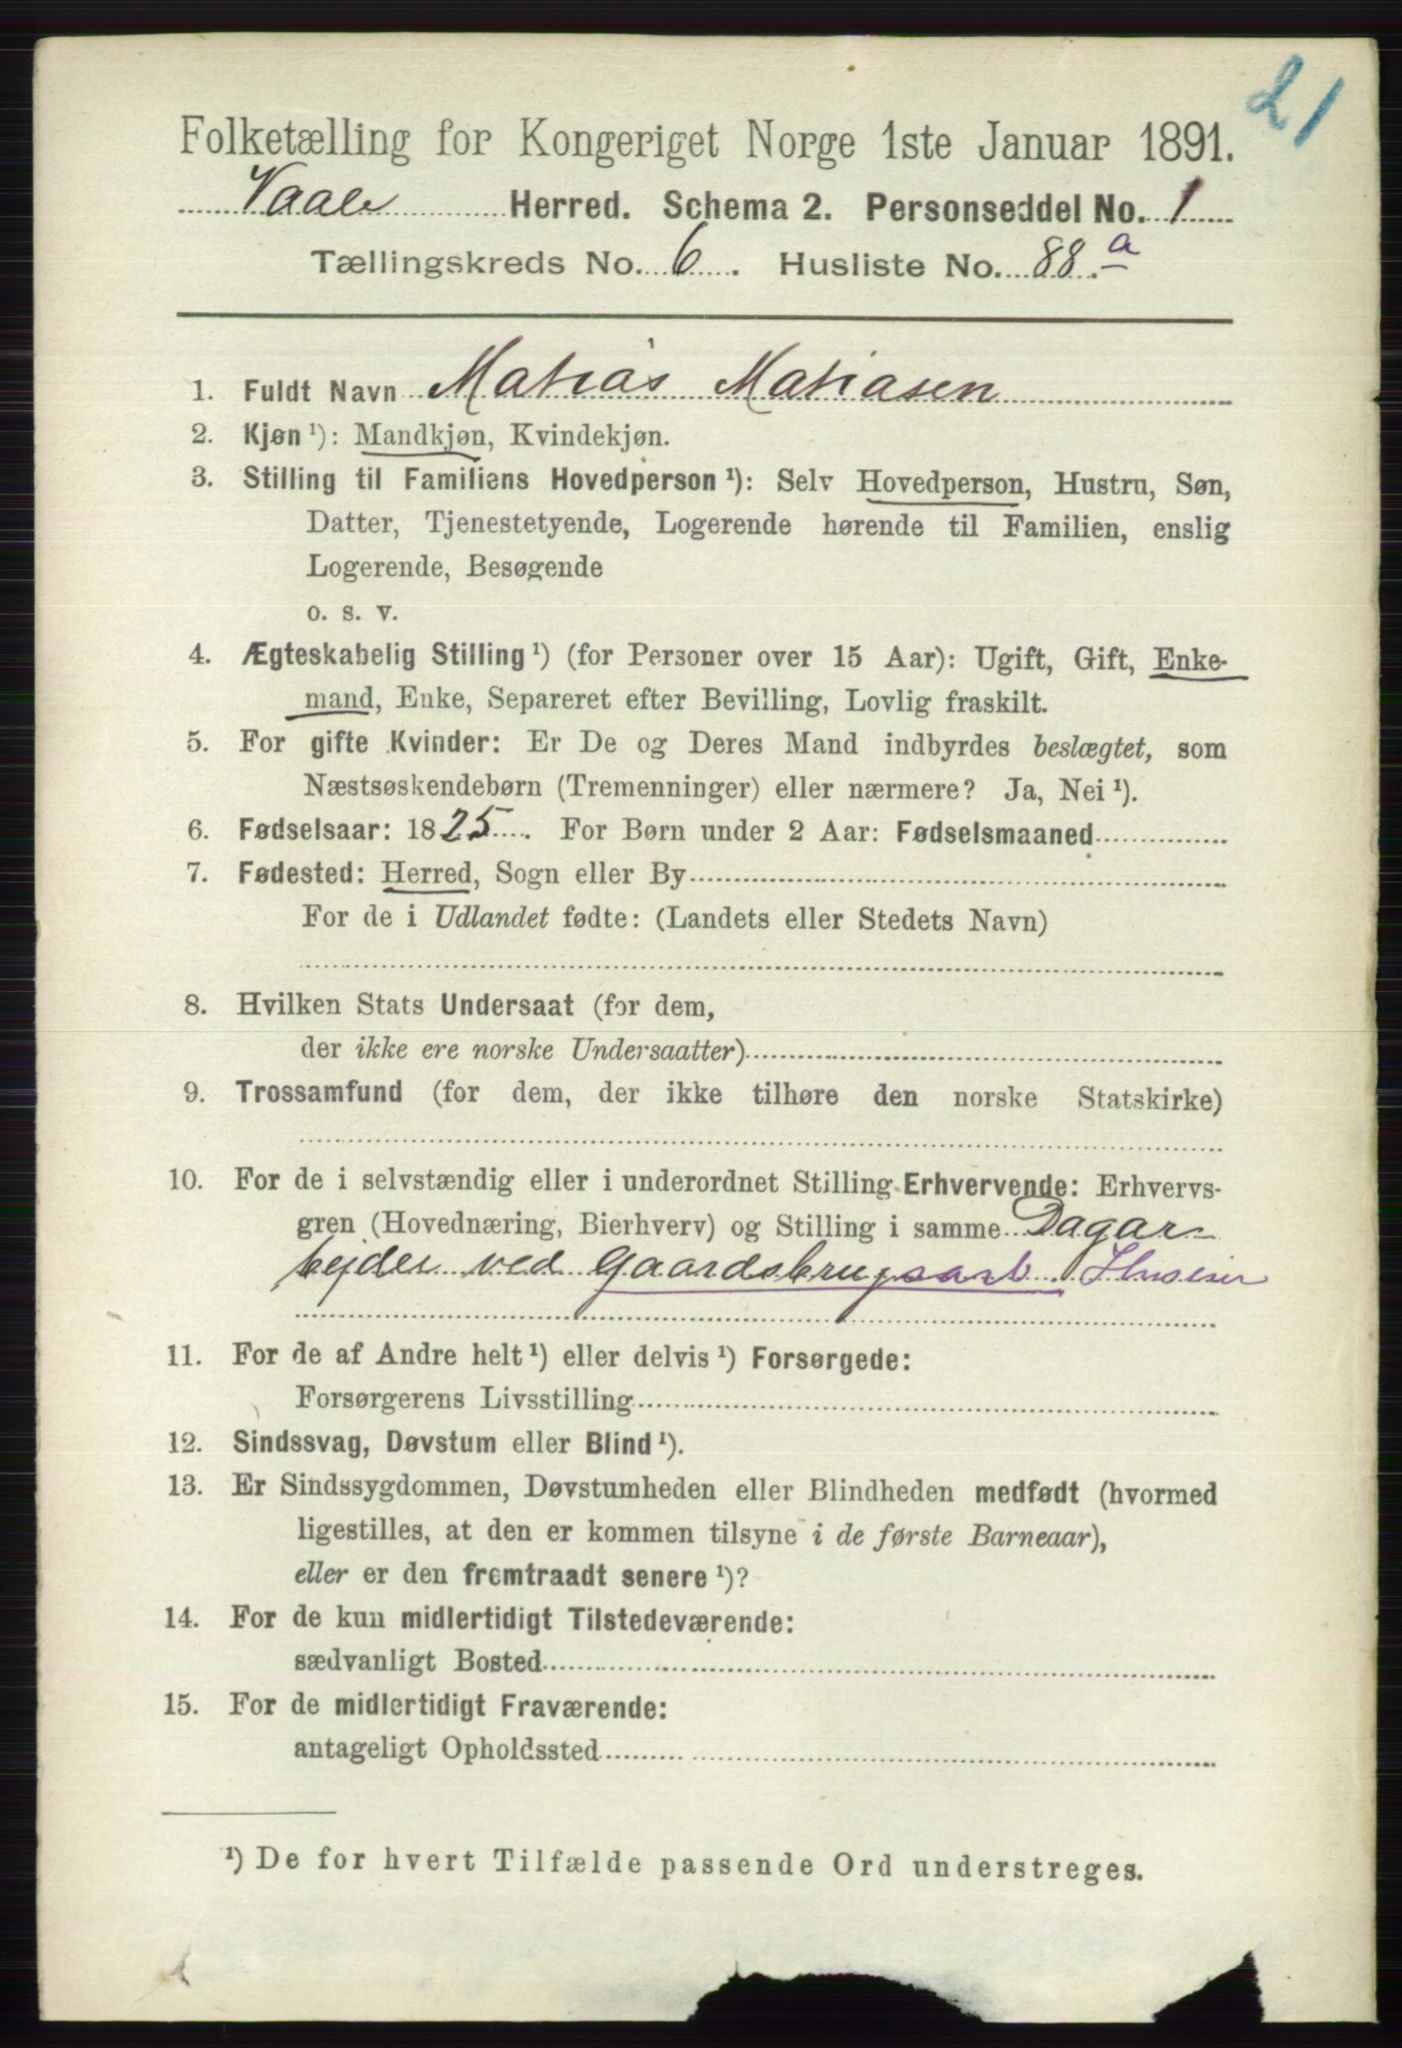 21
Folketælling for Kongeriget Norge 1ste Januar 1891.
Vaale Herred. Schema 2. Personseddel No. 1
Tællingskreds No. 6. Husliste No. 88.a
1. Fuldt Navn Matias Matiasen
2. Kjøn¹): Mandkjøn, Kvindekjøn.
3. Stilling til Familiens Hovedperson¹): Selv Hovedperson, Hustru, Søn,
Datter, Tjenestetyende, Logerende hørende til Familien, enslig
Logerende, Besøgende
o. s. v.
4. Ægteskabelig Stilling¹) (for Personer over 15 Aar): Ugift, Gift, Enke-
mand, Enke, Separeret efter Bevilling, Lovlig fraskilt.
5. For gifte Kvinder: Er De og Deres Mand indbyrdes beslægtet, som
Næstsøskendebørn (Tremenninger) eller nærmere? Ja, Nei¹).
6. Fødselsaar: 1825. For Børn under 2 Aar: Fødselsmaaned
7. Fødested: Herred, Sogn eller By
For de i Udlandet fødte: (Landets eller Stedets Navn)
8. Hvilken Stats Undersaat (for dem,
der ikke ere norske Undersaatter)
9. Trossamfund (for dem, der ikke tilhøre den norske Statskirke)
10. For de i selvstændig eller i underordnet Stilling Erhvervende: Erhvervs-
gren (Hovednæring, Bierhverv) og Stilling i samme Dagar-
bejder ved Gaardsbrugsarb.
11. For de af Andre helt¹) eller delvis¹) Forsørgede:
Forsørgerens Livsstilling
12. Sindssvag, Døvstum eller Blind¹).
13. Er Sindssygdommen, Døvstumheden eller Blindheden medfødt (hvormed
ligestilles, at den er kommen tilsyne i de første Barneaar),
eller er den fremtraadt senere¹)?
14. For de kun midlertidigt Tilstedeværende:
sædvanligt Bosted
15. For de midlertidigt Fraværende:
antageligt Opholdssted
¹) De for hvert Tilfælde passende Ord understreges.